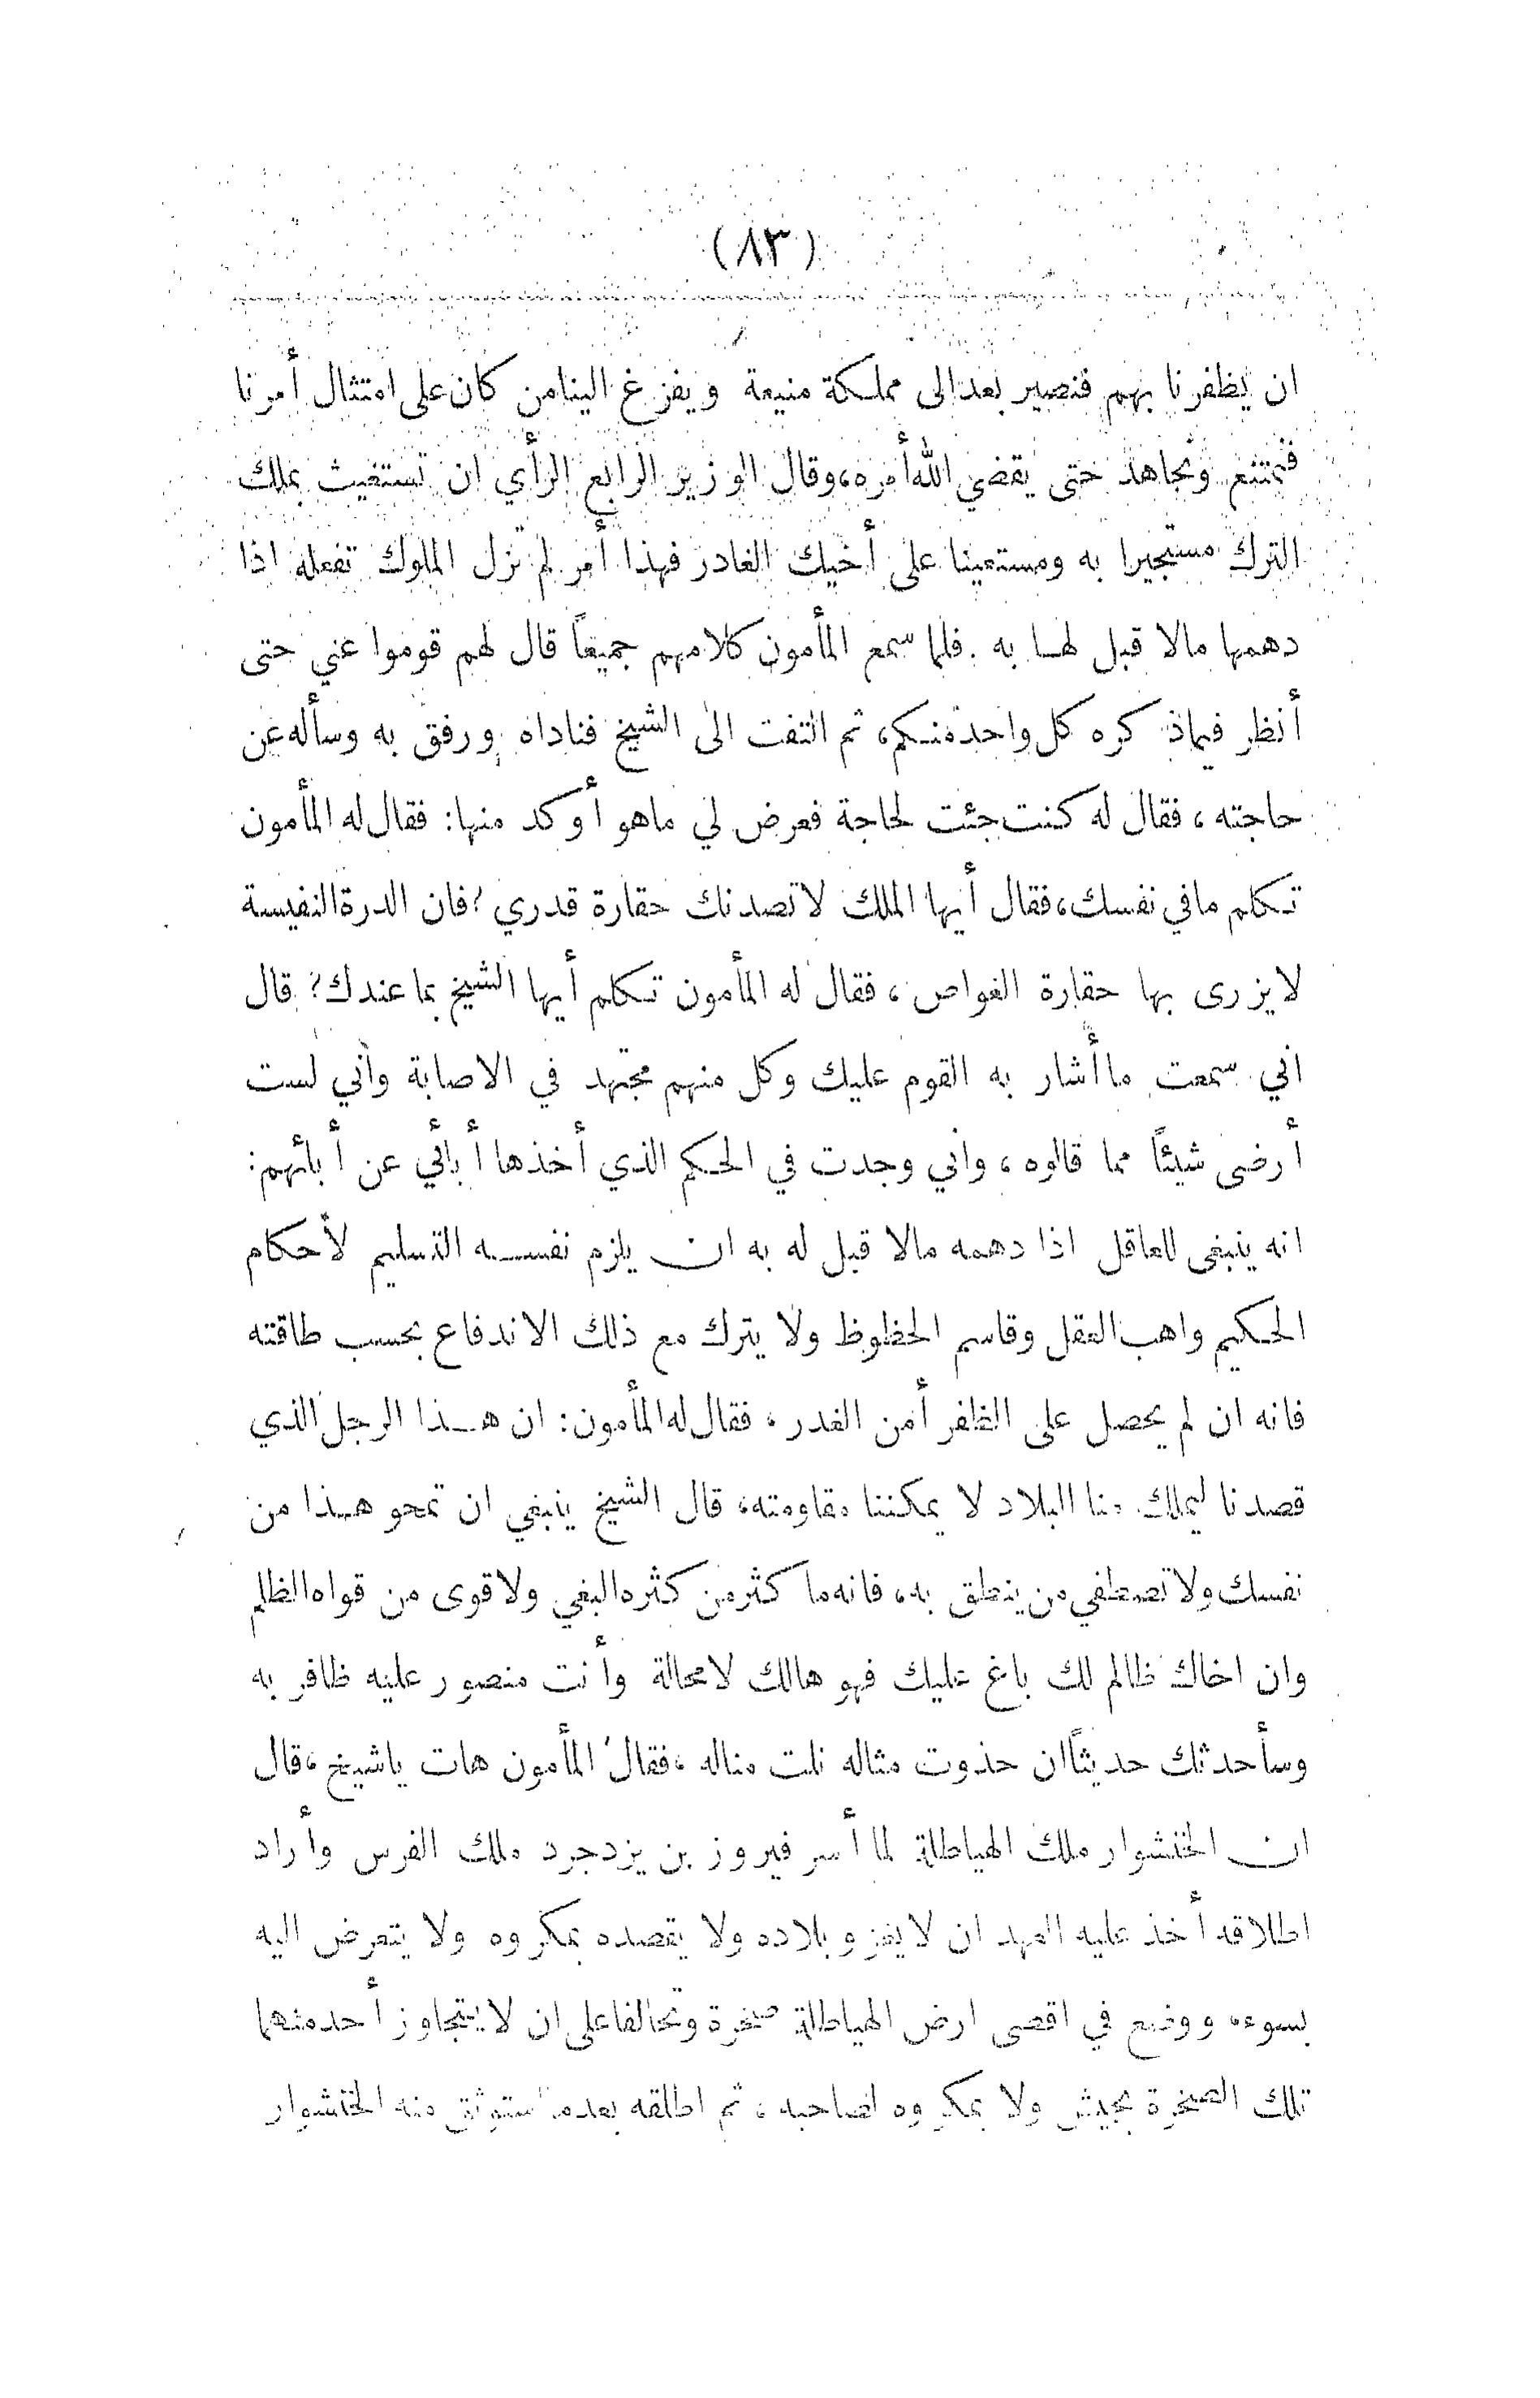 (٨٣)
ان يظفرنا بهم فنصير بعد الى مملكة منيعة ويفزغ الينا من كان على امتثال أمرنا
فنمتنع ونجاهد حتى يقضي الله أمره، وقال الوزير الرابع الرأي ان تستغيث بملك
الترك مستجيرا به ومستعينا على أخيك الغادر فهذا أمر لم تزل الملوك تفعله اذا
دهمها مالا قبل لها به . فلما سمع المأمون كلامهم جميعاً قال لهم قوموا عني حتى
أنظر فيما ذكره كل واحد منكم، ثم التفت الى الشيخ فناداه ورفق به وسأله عن
حاجته ، فقال له كنت جئت لحاجة فعرض لي ماهو أوكد منها: فقال له المأمون
تكلم مافي نفسك، فقال أيها الملك لا تصدنك حقارة قدري ؛ فان الدرة النفيسة
لايزرى بها حقارة الغواص ، فقال له المأمون تكلم أيها الشيخ بما عندك؟ قال
اني سمعت ما أشار به القوم عليك وكل منهم مجتهد في الاصابة واني لست
أرضى شيئاً مما قالوه ، واني وجدت في الحكم الذي أخذها أبائي عن أبائهم:
انه ينبغي للعاقل اذا دهمه مالا قبل له به ان يلزم نفسه التسليم لأحكام
الحكيم واهب العقل وقاسم الحظوظ ولا يترك مع ذلك الاندفاع بحسب طاقته
فانه ان لم يحصل على الظفر أمن الغدر ، فقال له المأمون: ان هذا الرجل الذي
قصدنا ليملك منا البلاد لا يمكننا مقاومته، قال الشيخ ينبغي ان تمحو هذا من
نفسك ولا تصطفي من ينطق به، فانه ما كثر من كثره البغي ولا قوى من قواه الظلم
وان اخاك ظالم لك باغ عليك فهو هالك لامحالة وأنت منصور عليه ظافر به
وسأحدثك حديثاً ان حذوت مثاله نلت مناله ،فقال المأمون هات ياشيخ ،قال
ان الخنشوار ملك الهياطلة لما أسر فيروز بن يزدجرد ملك الفرس وأراد
اطلاقه أخذ عليه العهد ان لا يغزو بلاده ولا يقصده بمكروه ولا يتعرض اليه
بسوء، ووضع في اقصى ارض الهياطلة صخرة وتحالفا على ان لا يتجاوز أحد منهما
تلك الصخرة بجيش ولا بمكروه لصاحبه ، ثم اطلقه بعد ما استوثق منه الخنشوار